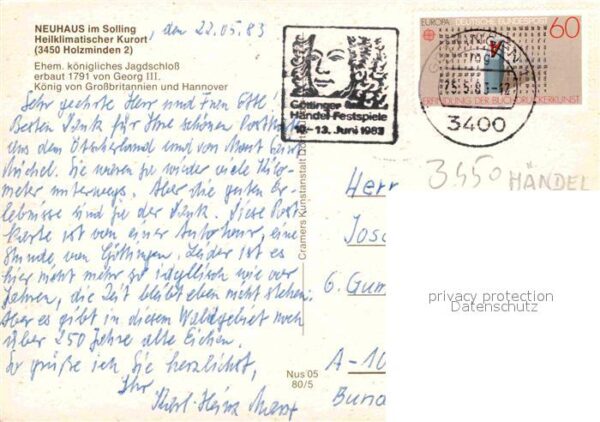 NEUHAUS im Solling
Heilklimatischer Kurort
(3450 Holzminden 2)
Ehem. königliches Jagdschloß
erbaut 1791 von Georg III.
König von Großbritannien und Hannover
, den 22.05.83
Sehr geehrte Herr und Frau
Besten Dank für Ihre schönen Postkarten
aus dem Elsterland und von Mont Saint
Michel. Sie waren ja wieder viele Kilo-
meter unterwegs. Aber die guten Er-
lebnisse sind ja der Dank. Diese Post
karte ist von einer Autotour, eine
Stunde von Göttingen. Leider ist es
hier nicht mehr so idyllisch wie vor
Jahren, die Zeit bleibt eben nicht stehen.
Aber es gibt in diesem Waldgebiet noch
über 250 Jahre alte Eichen.
So grüße ich Sie herzlichst,
Ihr
Karl-Heinz
Cramers Kunstanstalt Dortmund
Nus 05
80/5
Göttinger
Händel-Festspiele
10.-13. Juni 1983
EUROPA DEUTSCHE BUNDESPOST
60
ERFINDUNG DER BUCHDRUCKERKUNST
GÖTTINGEN
25.5.83-12
3400
3450 HÄNDEL
Herr
Jose
6. Gum
A-10
Bund
privacy protection
Datenschutz